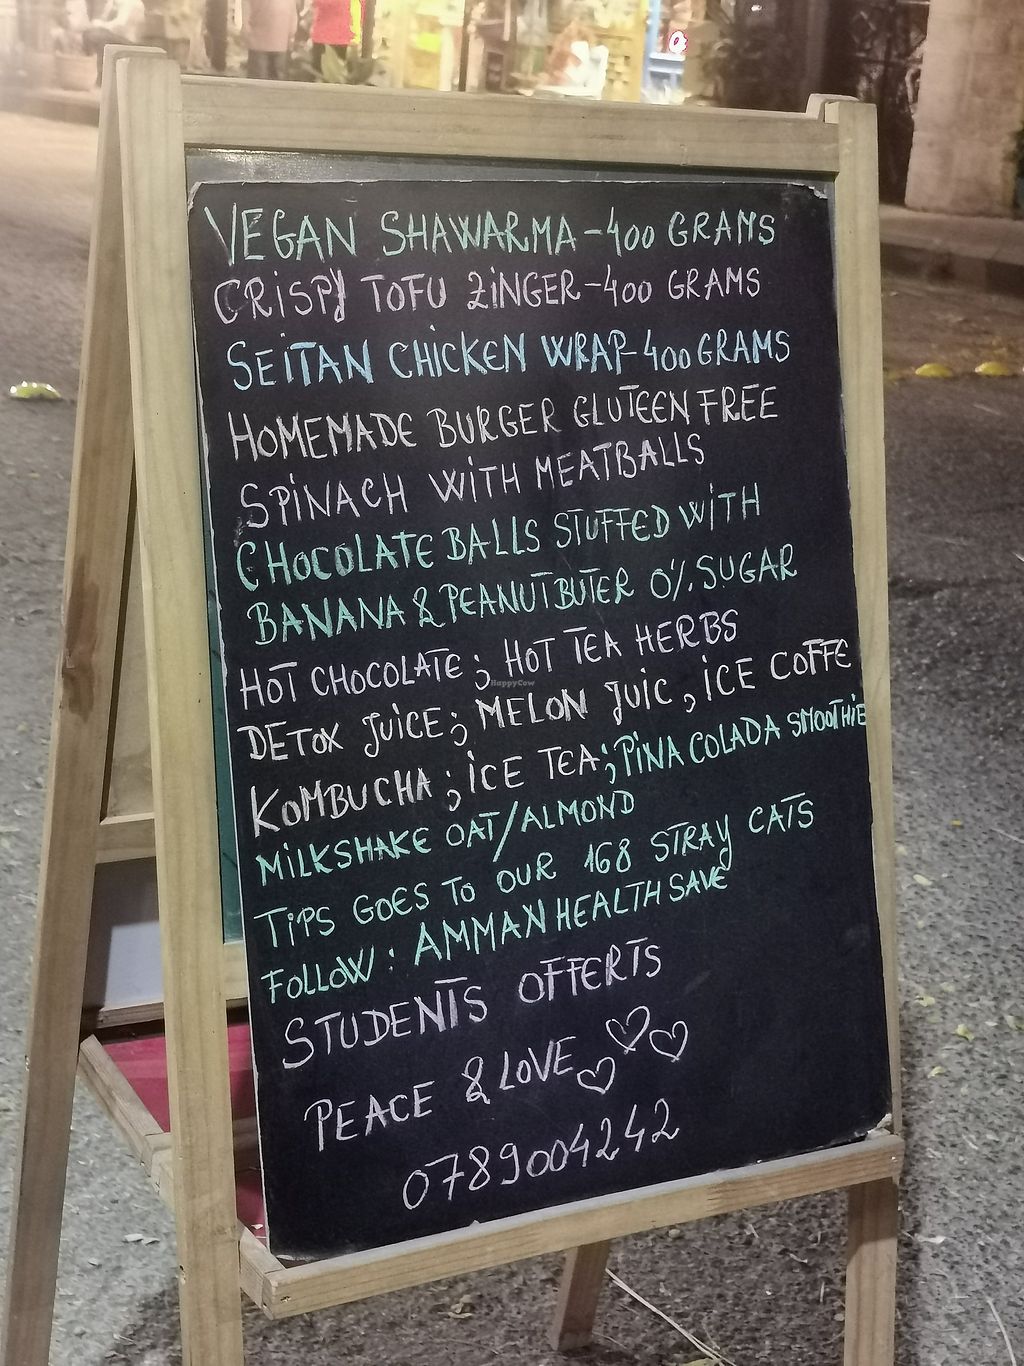 VEGAN SHAWARMA-400 GRAMS
CRISPY TOFU ZINGER-400 GRAMS
SEITAN CHICKEN WRAP-400 GRAMS
HOMEMADE BURGER GLUTEEN FREE
SPINACH WITH MEATBALLS
CHOCOLATE BALLS STUFFED WITH
BANANA & PEANUTBUTER 0% SUGAR
HOT CHOCOLATE; HOT TEA HERBS
HappyCow
DETOX JUICE; MELON JUIC, ICE COFFE
KOMBUCHA; ICE TEA; PINA COLADA SMOOTHIE
MILKSHAKE OAT/ALMOND
TIPS GOES TO OUR 168 STRAY CATS
FOLLOW: AMMAN HEALTH SAVE
STUDENTS OFFERTS
PEACE & LOVE
0789004242